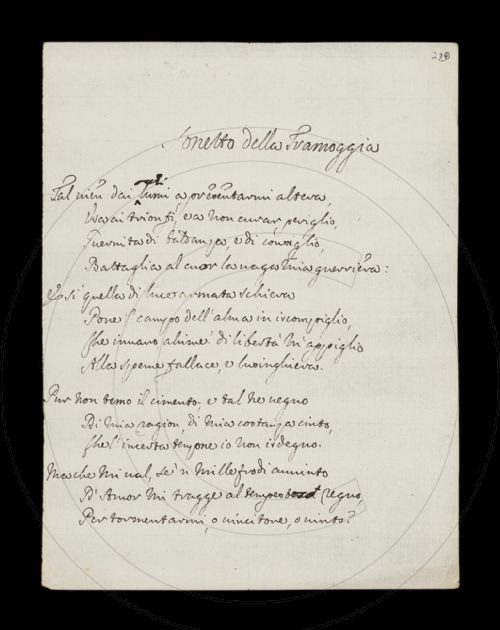 229
Sonetto della Tramoggia
Tal vien dai lumi a presentarmi altera,
Usa ai trionfi, e a non curar periglio,
Guernita di baldanza, e di consiglio,
Battaglia al cuor la vaga mia guerriera:
E sì quella di luce armata schiera
Pone 'l campo dell'alma in iscompiglio,
Che invano ahimè! di libertà m'appiglio
Alla speme fallace, e lusinghiera.
Pur non temo il cimento, e tal ne vegno
Di mia ragion, di mia costanza cinto,
Che l'incerta tenzone io non isdegno.
Ma che mi val, se 'n mille frodi avvinto
D'Amor mi tragge al regno,
Per tormentarmi, o vincitore, o vinto?